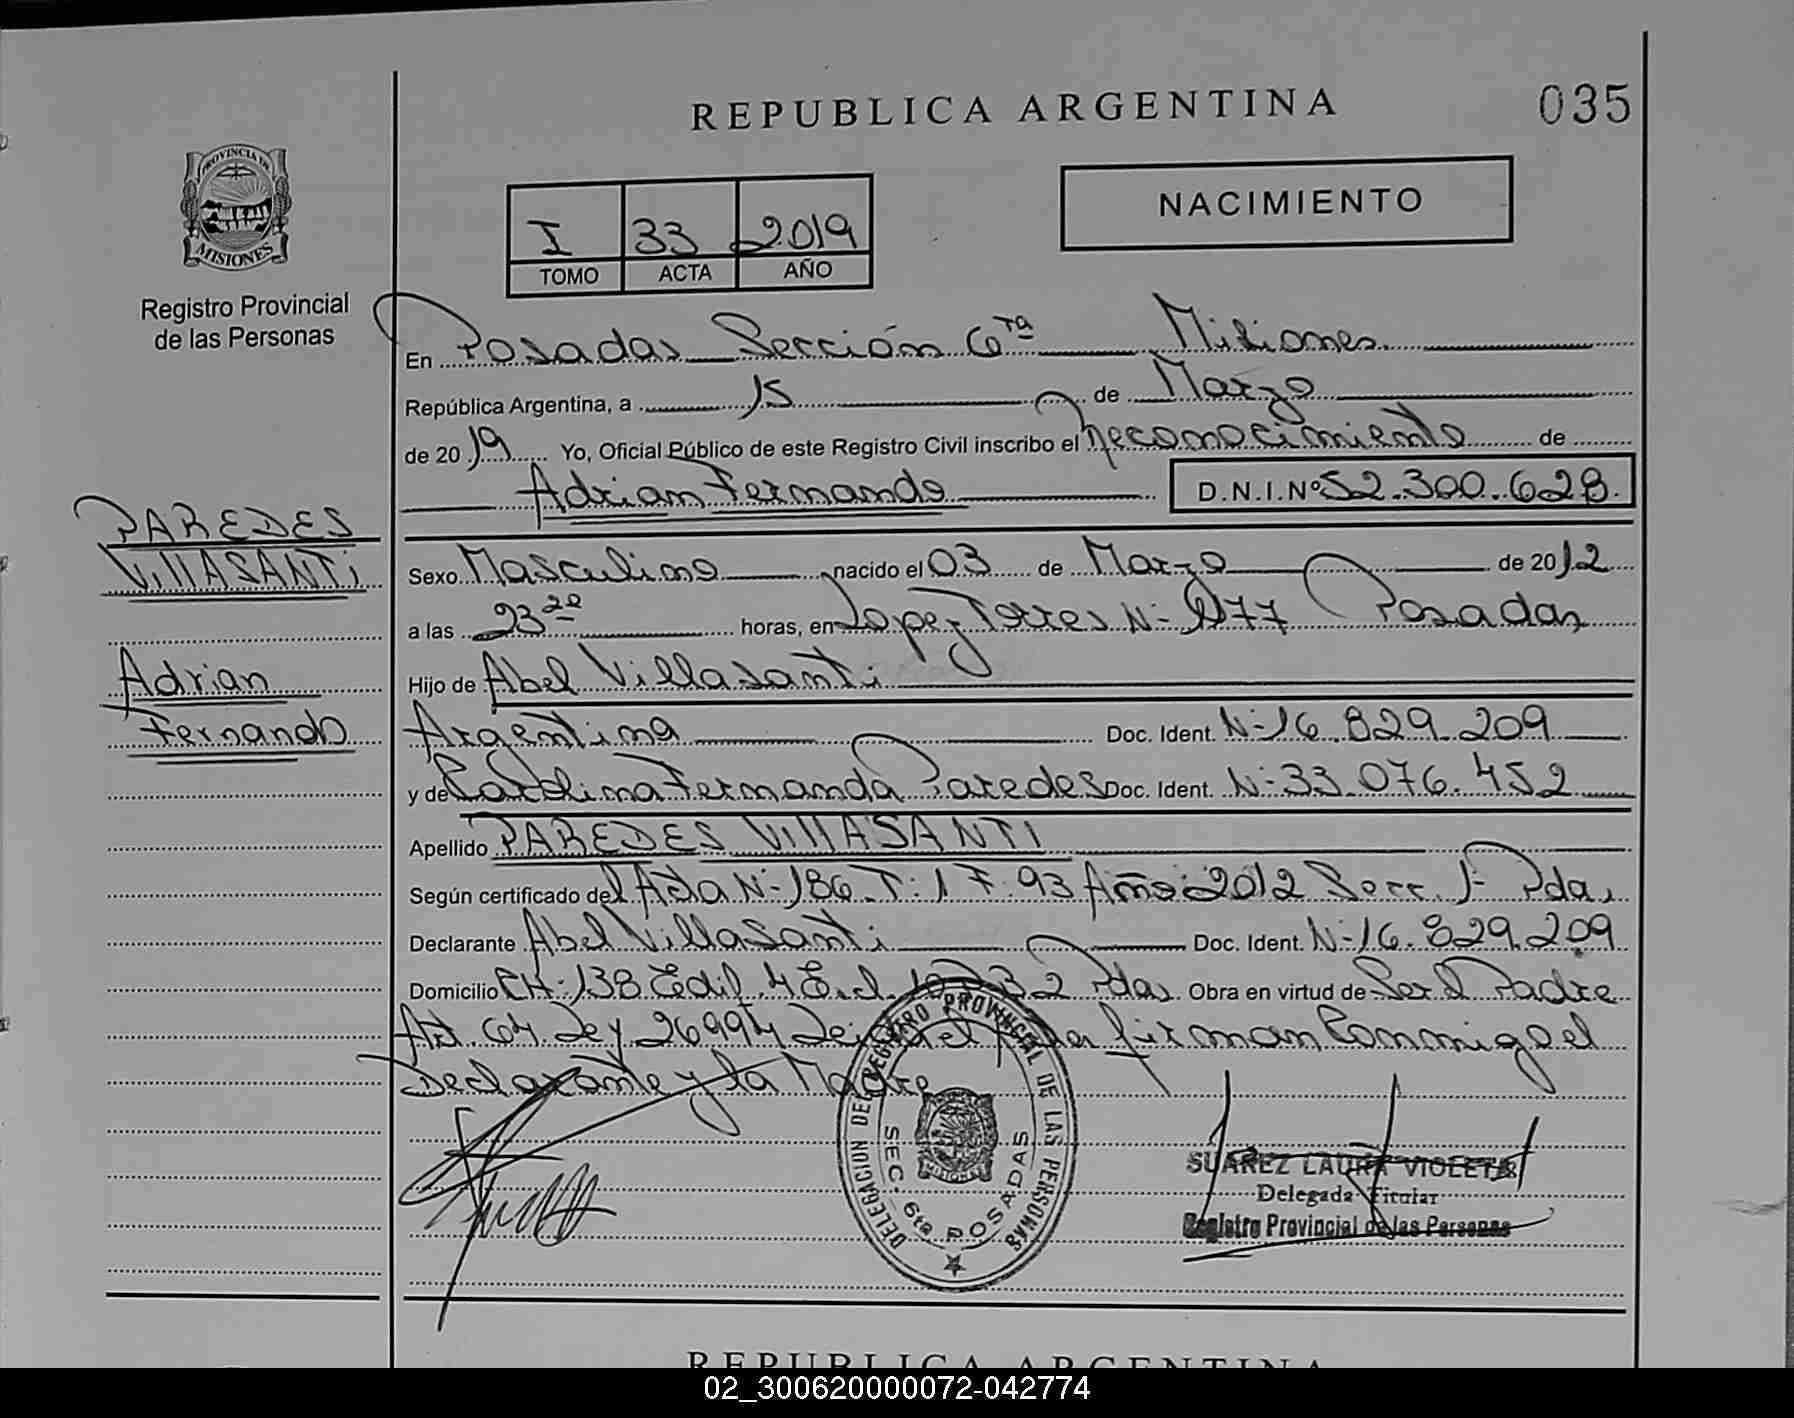 REPUBLICA ARGENTINA
035
PROVINCIA DE
MISIONES
Registro Provincial
de las Personas
I 33 2019
TOMO ACTA AÑO
NACIMIENTO
En Posadas Sección 6ta Misiones
República Argentina, a 15 de Marzo
de 2019 Yo, Oficial Público de este Registro Civil inscribo el Reconocimiento de
Adrian Fernando D.N.I.Nº 52.300.628
PAREDES
VillASANTi
Adrian
Fernando
Sexo Masculino nacido el 03 de Marzo de 2012
a las 23 20 horas, en Lopez Torres N- 1177 Posadas
Hijo de Abel Villasanti
Argentina Doc. Ident. N-16.829.209
y de Carolina Fernanda Paredes Doc. Ident. N-33.076.452
Apellido PAREDES VillASANTI
Según certificado del Acta N-186 T:1 F:93 Año:2012 Secc. 1- Pdas
Declarante Abel Villasanti Doc. Ident. N-16.829.209
Domicilio CH:138 Edif. 4 Pdas. Obra en virtud de Ser el Padre
Art. 64 Ley 26994 firman Conmigo el
Declarante y la Madre
DELEGACION DEL REGISTRO PROVINCIAL DE LAS PERSONAS
SEC. 6ta POSADAS
MISIONES
SUAREZ LAURA VIOLETA
Delegada Titular
Registro Provincial de las Personas
REPUBLICA ARGENTINA
02_300620000072-042774